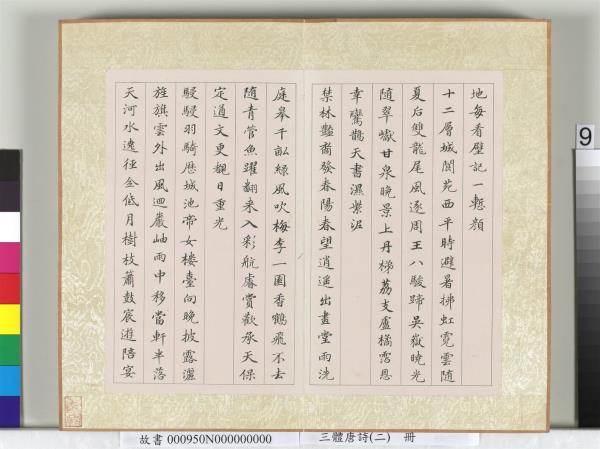 地每看壁記一慙顔
十二層城閬苑西平時避暑拂虹霓雲隨
夏后雙龍尾風逐周王八駿蹄吳嶽曉光
隨翠巘甘泉晚景上丹梯荔支盧橘霑恩
幸鸞鵲天書濕紫泥
禁林豔裔發春陽春望逍遙出畫堂雨洗
庭皋千畝綠風吹梅李一園香鶴飛不去
隨青管魚躍翻來入彩航睿賞歡承天保
定遒文更覩日重光
駸駸羽騎歷城池帝女樓臺向晚披露灑
旌旗雲外出風迴巖岫雨中移當軒半落
天河水遶徑全低月樹枝簫鼓宸遊陪宴
故書 000950N000000000 三體唐詩(二) 冊
9